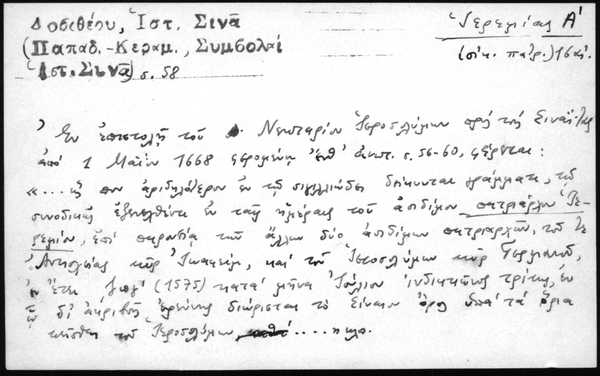 Δοσιθέου, Ἱστ. Σινᾶ
(Παπαδ.-Κεραμ., Συμβολαί
Ἱστ. Σινᾶ) σ. 58
Ἱερεμίας Α΄
(οἰκ. πατρ.) 16 αἰ.
Ἐν ἐπιστολῇ τοῦ Νεκταρίου Ἱεροσολύμων πρὸς τοὺς Σιναΐτας
ἀπὸ 1 Μαΐου 1668 σ. 56-60, φέρεται:
«... ἐν τοῖς σιγιλλιώδεσι δείκνυται γράμμασι, τοῖς
συνοδικῶς ἐν ταῖς ἡμέραις τοῦ ἀοιδίμου πατριάρχου Ἱε-
ρεμίου, ἐπὶ παρουσίᾳ τῶν ἄλλων δύο ἀοιδίμων πατριαρχῶν, τοῦ τε
Ἀντιοχείας κὺρ Ἰωακείμ, καὶ τοῦ Ἱεροσολύμων κὺρ Γερμανοῦ,
ἐν ἔτει (1575) κατὰ μῆνα Ἰούλιον ἰνδικτιῶνος τρίτης, ἐν
ᾧ δι' ἀκριβοῦς ἐρεύνης διώρισται τὸ Σίναιον ὄρος ὑπὸ τὰ ὅρια
τοῦ Ἱεροσολύμων, .... κλπ.